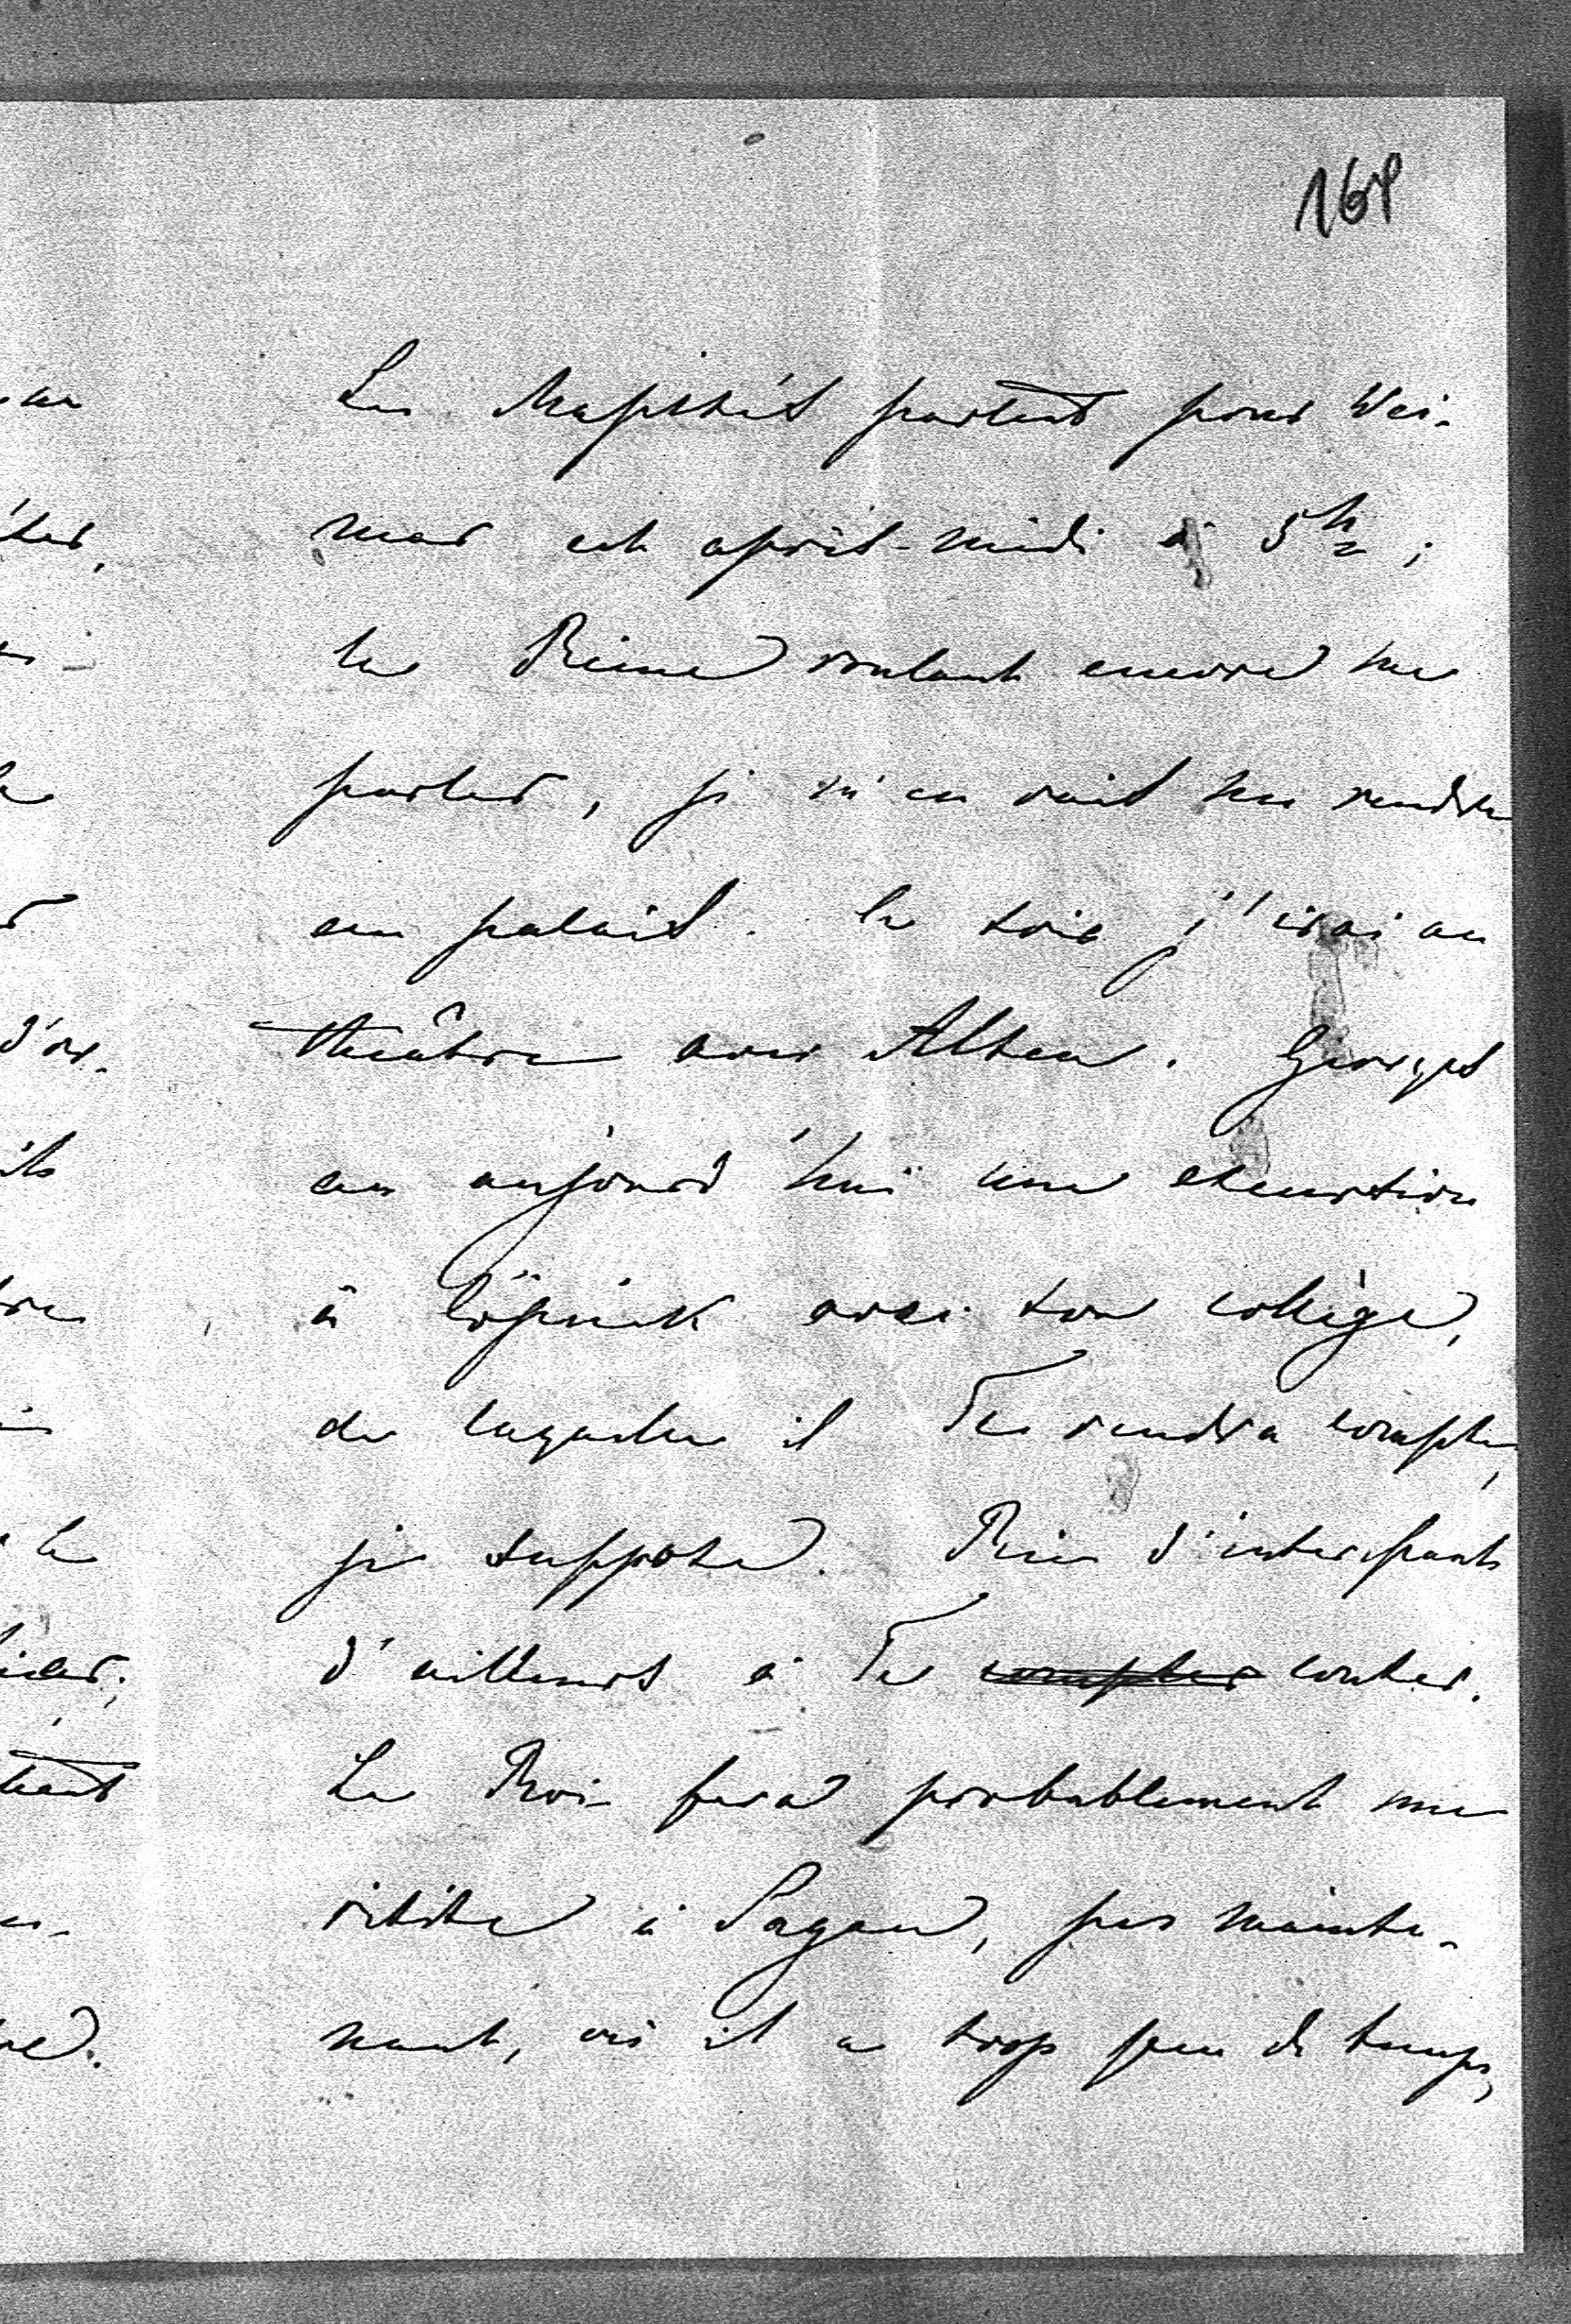 168
Les Majestés partent pour Wei-
mar cet après-midi à 5 h/2;
la Reine voulant encore me
parler, je m'en vais me rendre
au palais. Le soir j'irai au
théâtre avec Alten. Georges
a aujourd'hui une excursion
à Cöpenick avec son collège,
de laquelle il Te rendra compte,
je suppose. Rien d'interessant
d'ailleurs à Te compter conter.
Le Roi fera probablement une
visite à Sagan, pas mainte-
nant, où il a trop peu de temps,